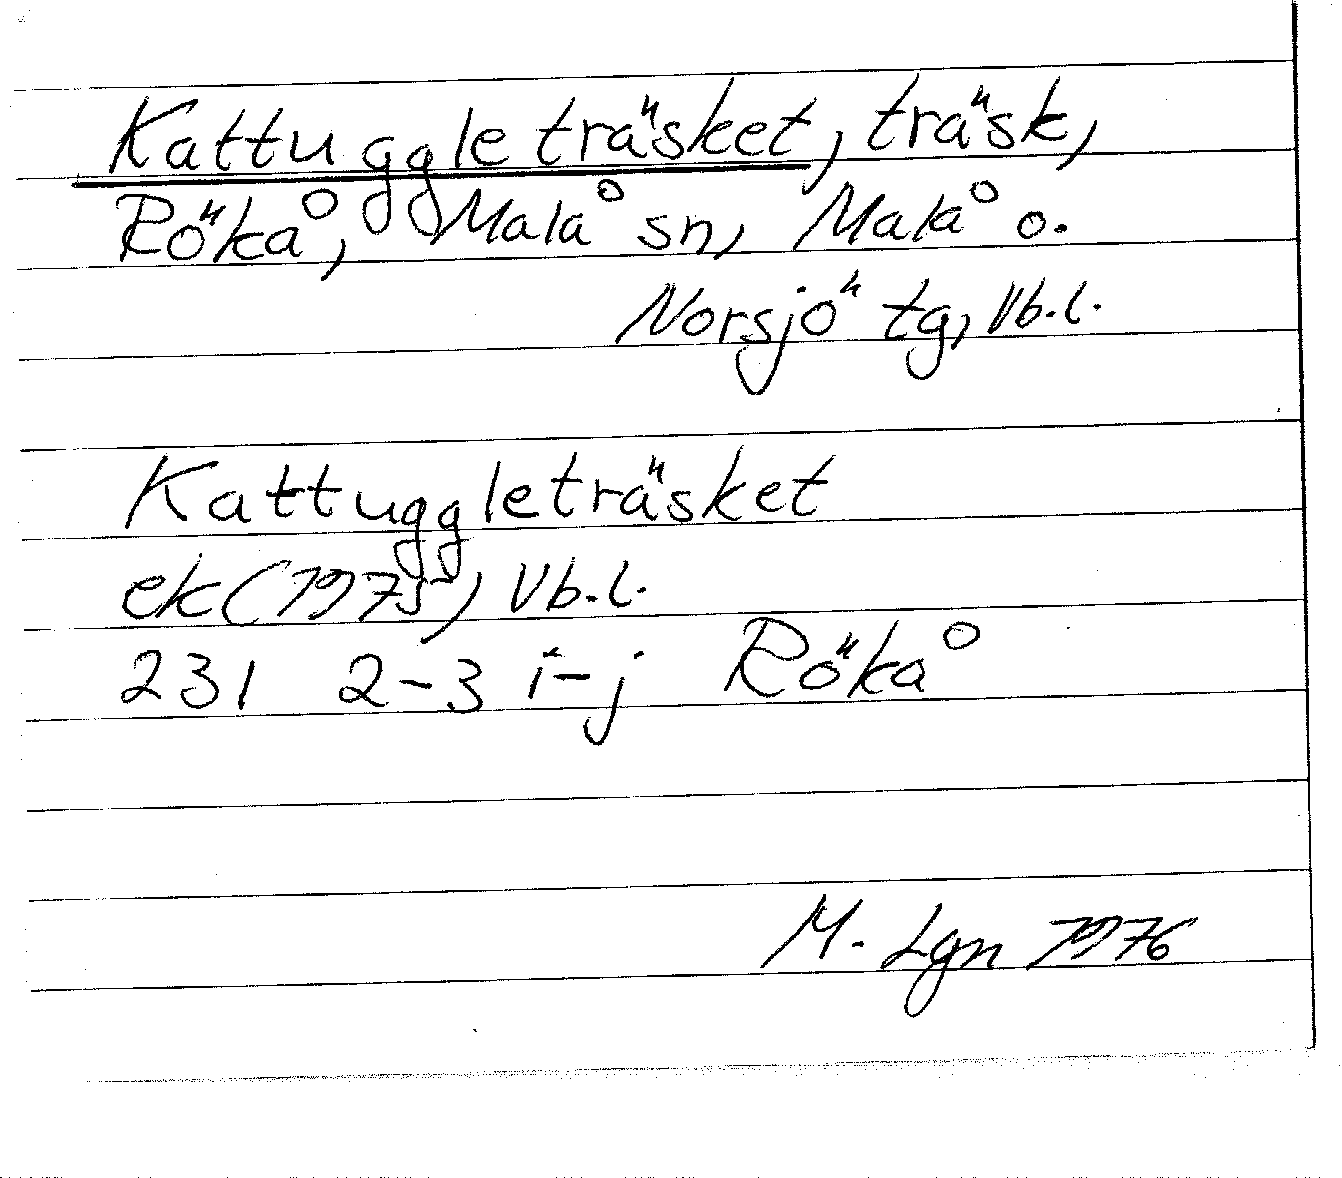 Kattuggleträsket, träsk,
Röká, Malå sn, Malå o.
Norsjö tg, Vb.l.
Kattuggleträsket
ek (1975) Vb.l.
231 2-3 i-j Rökå
M. Lgn 1976